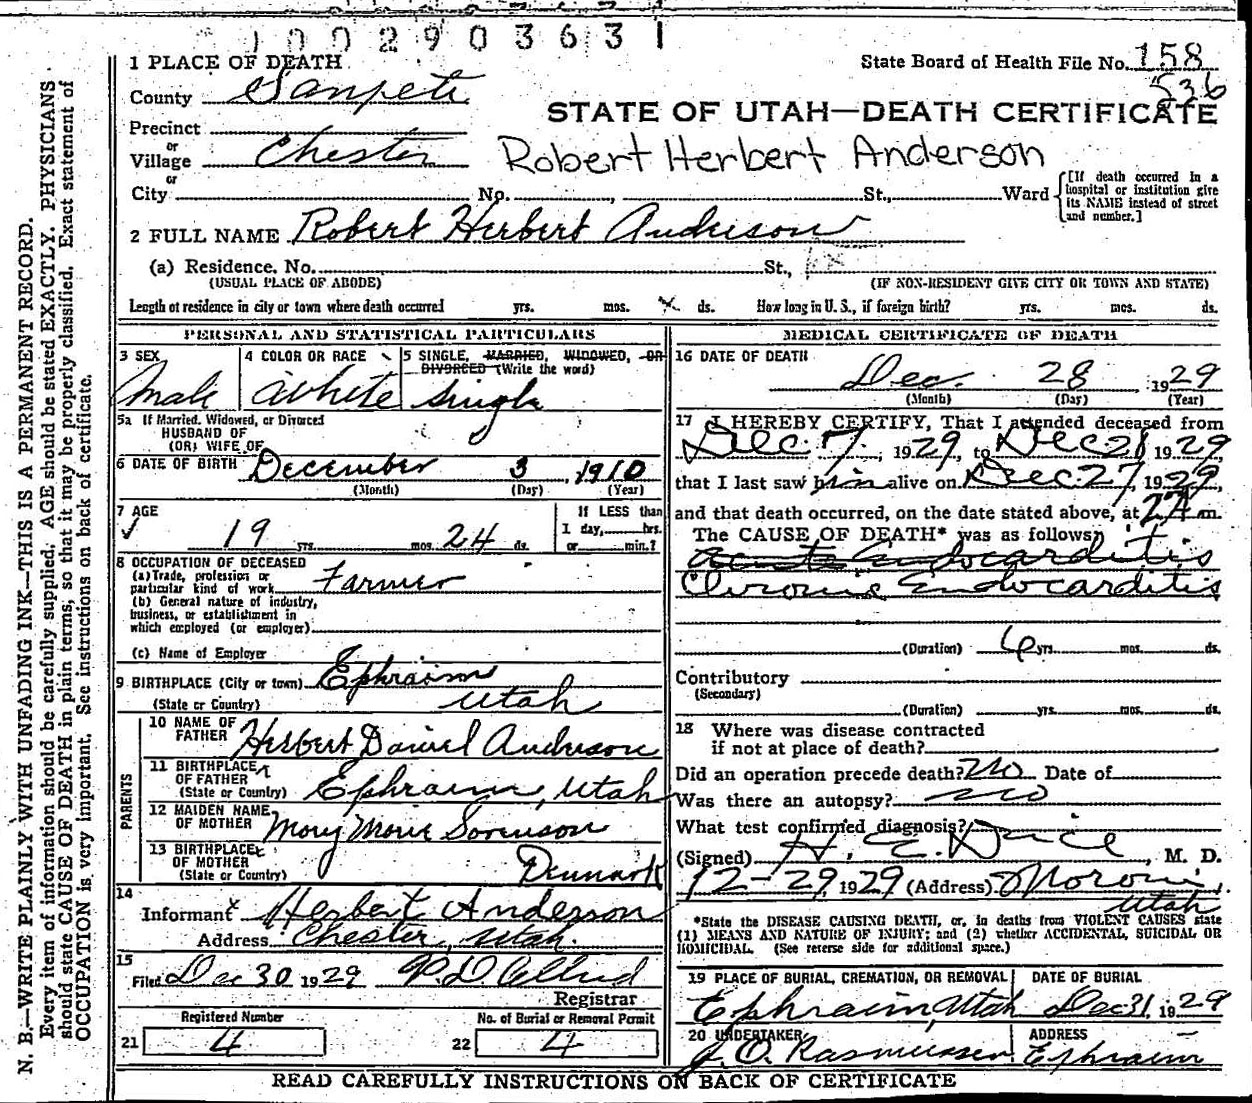 1002903631
1 PLACE OF DEATH
State Board of Health File No. 158
536
County Sanpete
STATE OF UTAH—DEATH CERTIFICATE
Precinct
or
Village Chester
Robert Herbert Anderson
or
City No. , St., Ward
[If death occurred in a hospital or institution give its NAME instead of street and number.]
2 FULL NAME Robert Herbert Anderson
(a) Residence. No. St.,
(USUAL PLACE OF ABODE) (IF NON-RESIDENT GIVE CITY OR TOWN AND STATE)
Length of residence in city or town where death occurred yrs. mos. ds. How long in U. S., if foreign birth? yrs. mos. ds.
PERSONAL AND STATISTICAL PARTICULARS
3 SEX
Male
4 COLOR OR RACE
White
5 SINGLE, MARRIED, WIDOWED, OR
DIVORCED (Write the word)
Single
5a If Married, Widowed, or Divorced
HUSBAND OF
(OR) WIFE OF
6 DATE OF BIRTH December 3, 1910
(Month) (Day) (Year)
7 AGE
19 yrs. mos. 24 ds.
If LESS than
1 day, hrs.
or min.?
8 OCCUPATION OF DECEASED
(a) Trade, profession or
particular kind of work Farmer
(b) General nature of industry,
business, or establishment in
which employed (or employer)
(c) Name of Employer
9 BIRTHPLACE (City or town) Ephraim
(State or Country) Utah
PARENTS
10 NAME OF
FATHER Herbert Daniel Anderson
11 BIRTHPLACE
OF FATHER
(State or Country) Ephraim, Utah
12 MAIDEN NAME
OF MOTHER Mary Marie Sorenson
13 BIRTHPLACE
OF MOTHER
(State or Country) Denmark
14
Informant Herbert Anderson
Address Chester, Utah.
15
Filed Dec 30 1929 P.D. Allred
Registrar
Registered Number No. of Burial or Removal Permit
21 4 22 4
MEDICAL CERTIFICATE OF DEATH
16 DATE OF DEATH
Dec. 28, 1929
(Month) (Day) (Year)
17 I HEREBY CERTIFY, That I attended deceased from
Dec. 7, 1929, to Dec 28 1929
that I last saw him alive on Dec. 27, 1929,
and that death occurred, on the date stated above, at 2 A m.
The CAUSE OF DEATH* was as follows:
Acute Endocarditis
Chronic Endocarditis
(Duration) 6 yrs. mos. ds.
Contributory
(Secondary)
(Duration) yrs. mos. ds.
18 Where was disease contracted
if not at place of death?
Did an operation precede death? No Date of
Was there an autopsy? No
What test confirmed diagnosis?
(Signed) H. E. Dice, M. D.
12-29, 1929 (Address) Moroni,
Utah
*State the DISEASE CAUSING DEATH, or, in deaths from VIOLENT CAUSES state
(1) MEANS AND NATURE OF INJURY; and (2) whether ACCIDENTAL, SUICIDAL OR
HOMICIDAL. (See reverse side for additional space.)
19 PLACE OF BURIAL, CREMATION, OR REMOVAL DATE OF BURIAL
Ephraim, Utah Dec 31, 1929
20 UNDERTAKER ADDRESS
J. O. Rasmussen Ephraim
READ CAREFULLY INSTRUCTIONS ON BACK OF CERTIFICATE
N. B.—WRITE PLAINLY WITH UNFADING INK—THIS IS A PERMANENT RECORD.
Every item of information should be carefully supplied. AGE should be stated EXACTLY. PHYSICIANS
should state CAUSE OF DEATH in plain terms, so that it may be properly classified. Exact statement of
OCCUPATION is very important. See instructions on back of certificate.